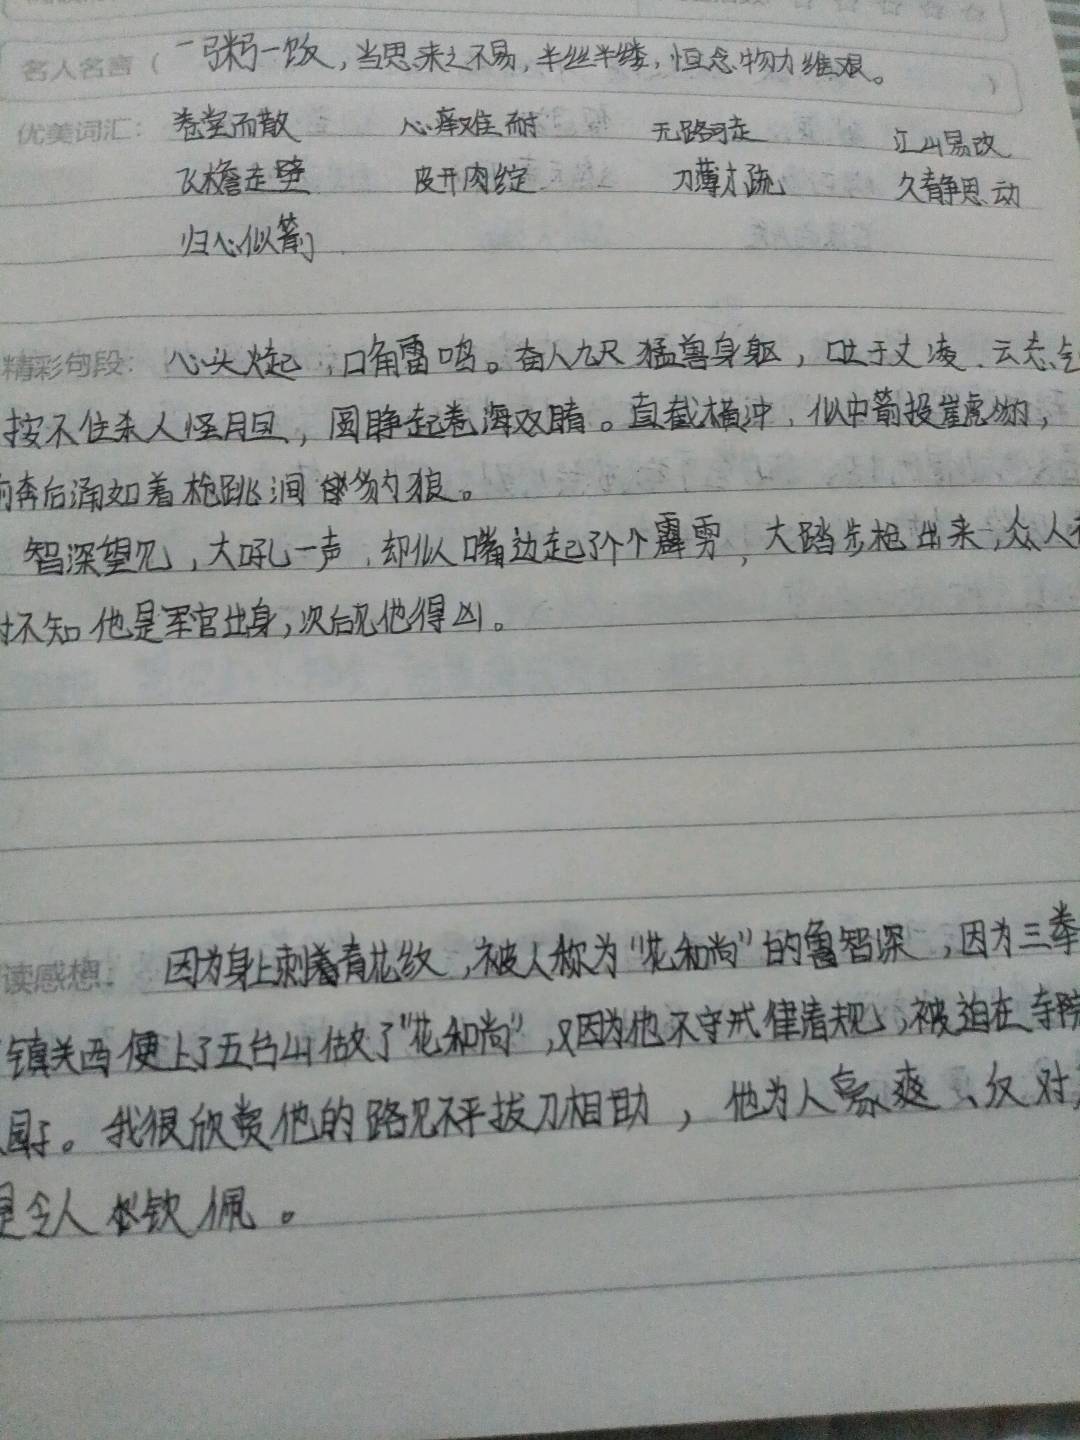 名人名言( 一粥一饭,当思来之不易,半丝半缕,恒念物力维艰。 )
优美词汇: 卷堂而散 心痒难耐 无路可走 江山易改
飞檐走壁 皮开肉绽 刀薄才疏 久静思动
归心似箭
精彩句段: 心头火起,口角雷鸣。奋八九尺猛兽身躯,吐三千丈凌云志气
按不住杀人怪胆,圆睁起卷海双睛。直截横冲,似中箭投崖虎豹,
前奔后涌如着枪跳涧豺狼。
智深望见,大吼一声,却似嘴边起了个霹雳,大踏步抢出来,众人
时不知他是军官出身,次后见他得凶。
读感想: 因为身上刺着青花纹,被人称为"花和尚"的鲁智深,因为三拳
镇关西便上了五台山做了"花和尚",又因为他不守戒律清规,被迫在寺院
园子。我很欣赏他的路见不平拔刀相助,他为人豪爽、仅对
是令人钦佩。